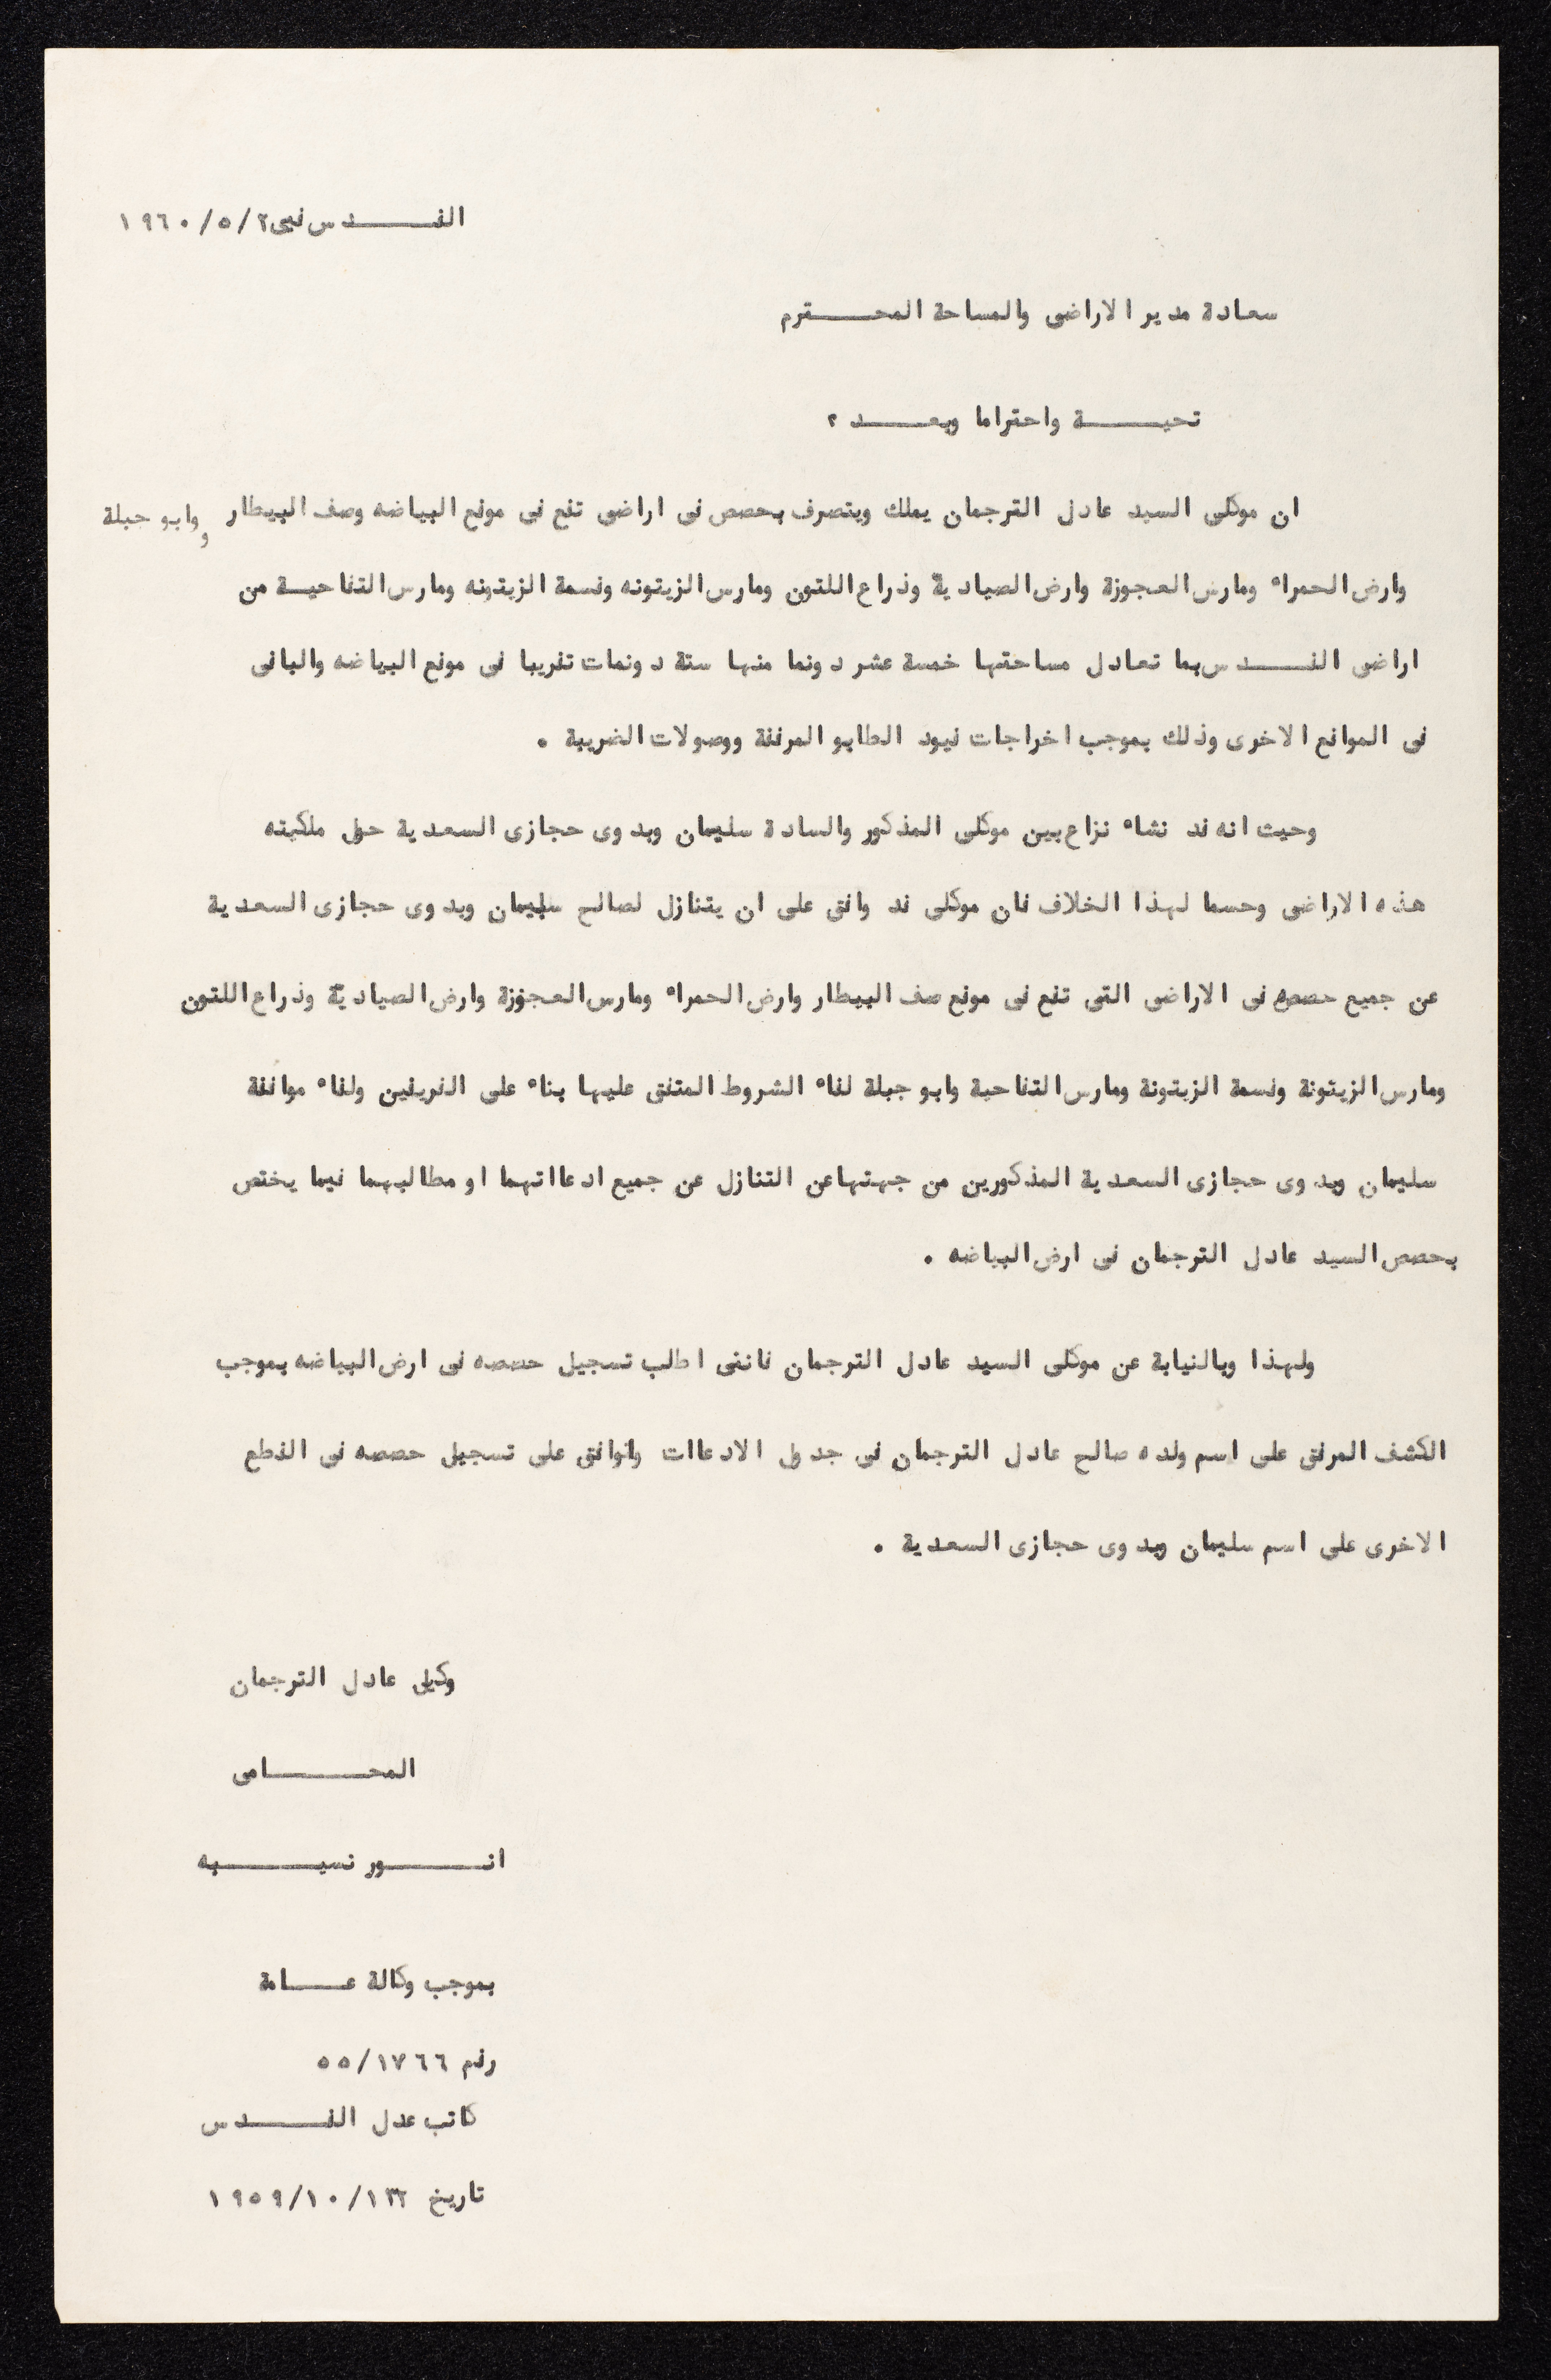 القـــدس في ٢/٥/١٩٦٠
سعادة مدير الاراضي والمساحة المحــترم
تحيـــة واحتراما وبعـــد ،
ان موكلي السيد عادل الترجمان يملك ويتصرف بحصص في اراضي تقع في موقع البياضه وصف البيطار وابو جبلة
وارض الحمراء ومارس العجوزة وارض الصيادية وذراع اللتون ومارس الزيتونه وقسمة الزيتونه ومارس التفاحيــة من
اراضي القـــدس بما تعادل مساحتها خمسة عشر دونما منها ستة دونمات تقريبا في موقع البياضه والباقي
في المواقع الاخرى وذلك بموجب اخراجات قيود الطابو المرفقة ووصولات الضريبة .
وحيث انه قد نشاء نزاع بين موكلي المذكور والسادة سليمان وبدوي حجازي السعدية حول ملكيته
هذه الاراضي وحسما لهذا الخلاف فان موكلي قد وافق على ان يتنازل لصالح سليمان وبدوي حجازي السعدية
عن جميع حصصه في الاراضي التي تقع في موقع صف البيطار وارض الحمراء ومارس العجوزة وارض الصيادية وذراع اللتون
ومارس الزيتونة وقسمة الزيتونة ومارس التفاحية وابو جبلة لقاء الشروط المتفق عليها بناء على الفريقين ولقاء موافقة
سليمان وبدوي حجازي السعدية المذكورين من جهتها عن التنازل عن جميع ادعااتهما او مطالبهما فيما يختص
بحصص السيد عادل الترجمان في ارض البياضه .
ولهذا وبالنيابة عن موكلي السيد عادل الترجمان فانني اطلب تسجيل حصصه في ارض البياضه بموجب
الكشف المرفق على اسم ولده صالح عادل الترجمان في جدول الادعاات واوافق على تسجيل حصصه في القطع
الاخرى على اسم سليمان وبدوي حجازي السعدية .
وكيل عادل الترجمان
المحـــامي
انـــور نسيـــبه
بموجب وكالة عـــامة
رقم ٥٥/١٧٦٦
كاتب عدل القـــدس
تاريخ /١٠/١٩٥٩